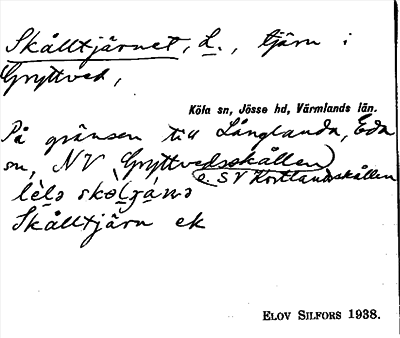 Skålltjärnet, L., tjärn i
Gryttved,
Köla sn, Jösse hd, Värmlands län.
På gränsen till Långlanda, Eda
sn, NV Gryttvedsskållen
o. SV Kortlandsskållen
Skålltjärn ek
ELOV SILFORS 1938.